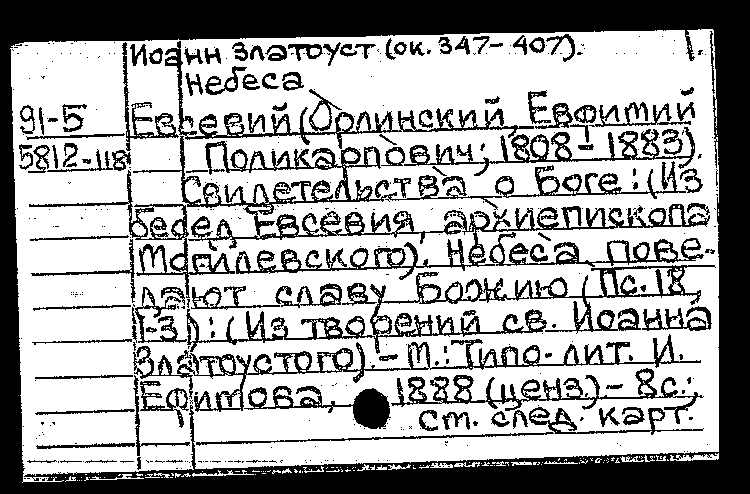 Иоанн Златоуст (ок. 347-407). 1.
Небеса
91-5 Евсевий (Орлинский, Евфимий
5812-118 Поликарпович; 1808-1883).
Свидетельства о Боге: (Из
бесед Евсевия, архиепископа
Могилевского). Небеса пове-
дают славу Божию (Пс. 18,
1-3): (Из творений св. Иоанна
Златоустого). - М.: Типо-лит. И.
Ефимова, 1888 (ценз.) - 8с.;
ст. след. карт.